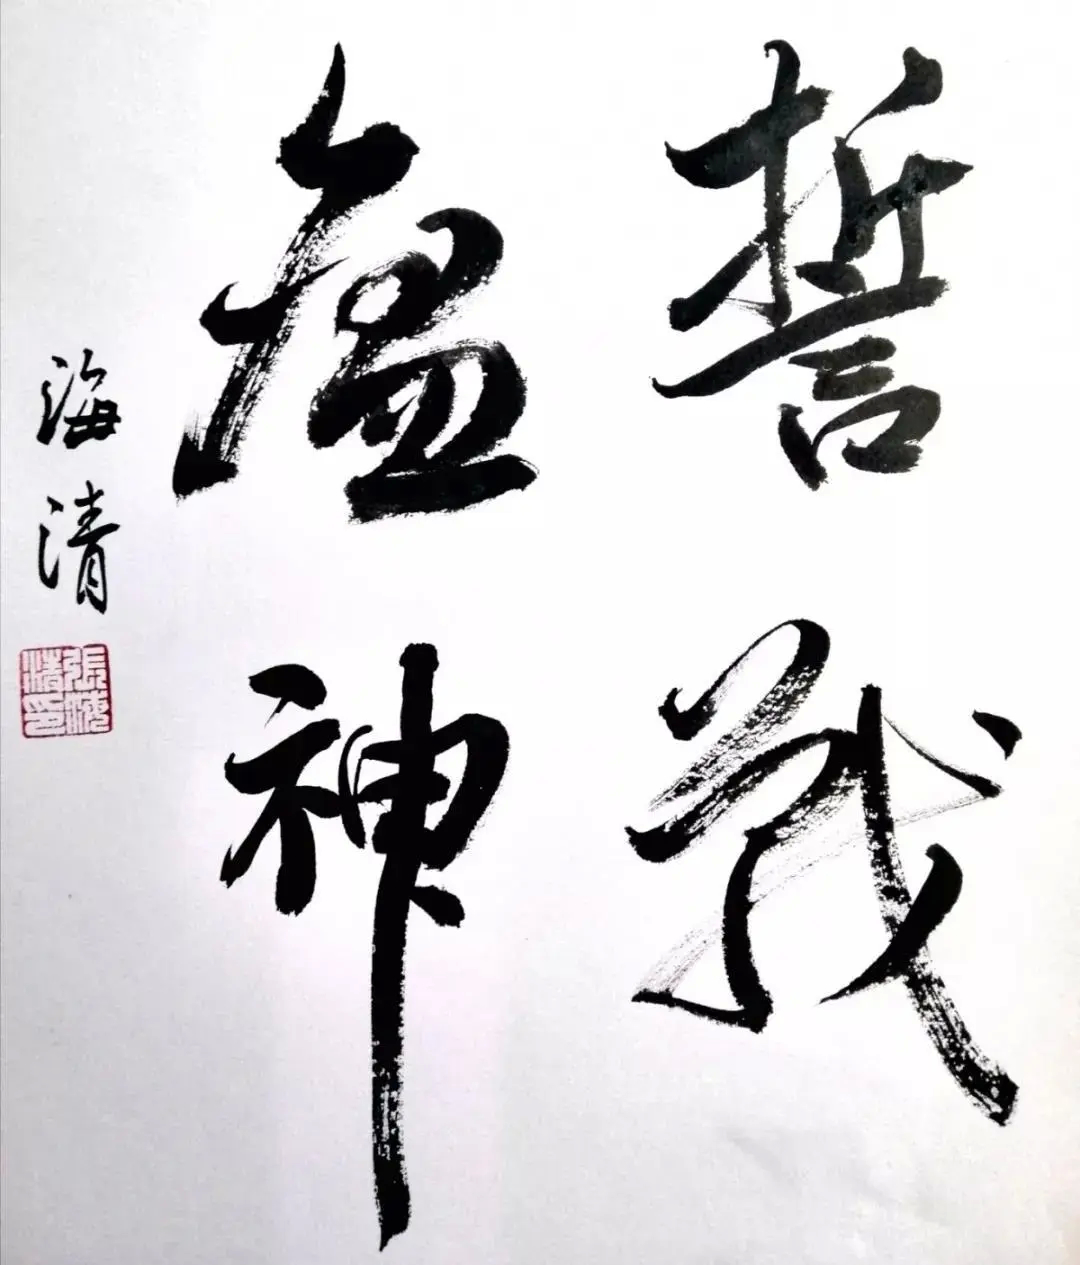 誓戰
瘟神
海清
張海
清印